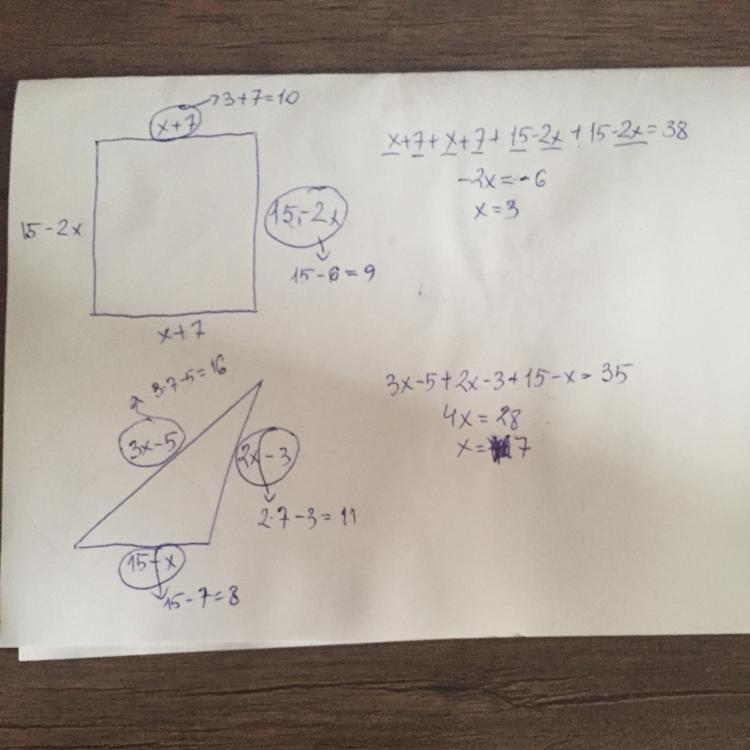 3+7=10
x+7
x+7+x+7+15-2x+15-2x=38
-2x=-6
x=3
15-2x
15-2x
15-6=9
x+7
3·7-5=16
3x-5+2x-3+15-x=35
4x=28
x=7
3x-5
2x-3
2·7-3=11
15-x
15-7=8